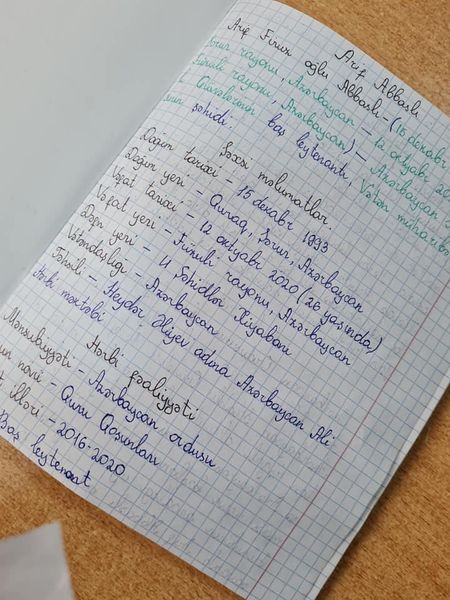 Arif Abbaslı
Arif Firuz oğlu Abbaslı - (15 dekabr
rayonu, Azərbaycan - 12 oktyabr 20
Füzuli rayonu, Azərbaycan) - Azərbaycan
Qüvvələrinin baş leytenantı, Vətən müharibə
şəhidi.
Şəxsi məlumatlar.
Doğum tarixi - 15 dekabr 1993
Doğum yeri - Qunaq, Şərur, Azərbaycan
Vəfat tarixi - 12 oktyabr 2020 (26 yaşında)
Vəfat yeri - Füzuli rayonu, Azərbaycan
Dəfn yeri - II Şəhidlər Xiyabanı
Vətəndaşlığı - Azərbaycan
Təhsili - Heydər Əliyev adına Azərbaycan Ali
Hərbi məktəbi
Hərbi fəaliyyəti
Mənsubiyyəti - Azərbaycan ordusu
növü - Quru Qoşunları
illəri - 2016-2020
Baş leytenant